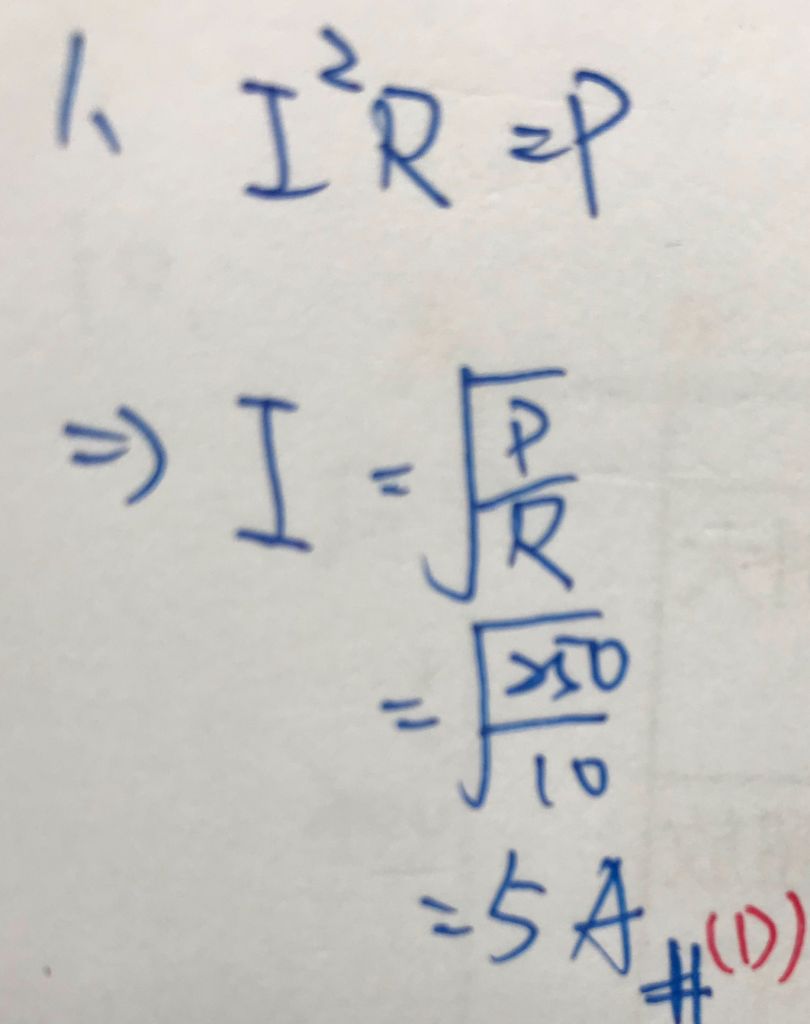 1、 I²R = P
⇒ I = √(P/R)
= √(250/10)
= 5 A # (D)